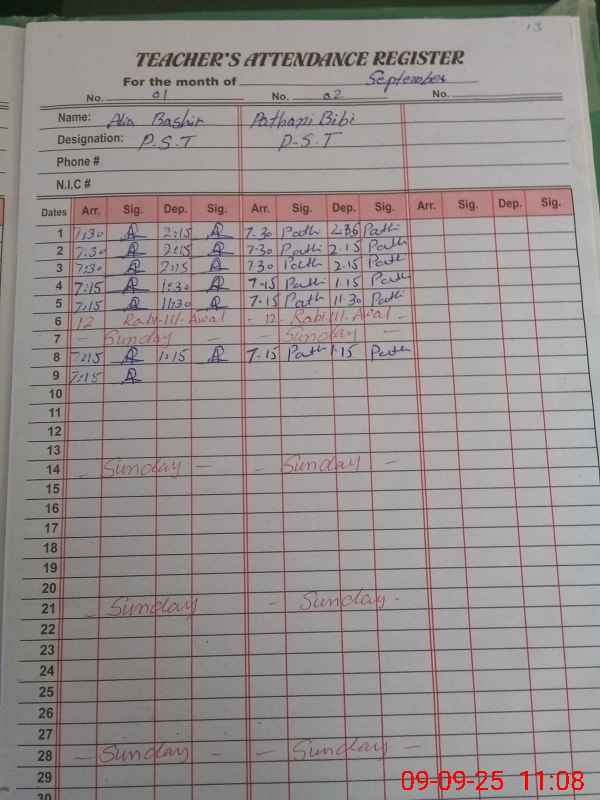 13
TEACHER'S ATTENDANCE REGISTER
For the month of September
No. 01 No. 02 No.
Name: Alia Bashir Pathani Bibi
Designation: P.S.T P.S.T
Phone #
N.I.C #
Dates Arr. Sig. Dep. Sig. Arr. Sig. Dep. Sig. Arr. Sig. Dep. Sig.
1 7:30 2:15 7.30 Path 2.36 Pathi
2 7:30 2:15 7.30 Pathi 2.15 Pathi
3 7:30 2:15 7.30 Path 2.15 Pathi
4 7:15 1:30 7.15 Path 1.15 Pathi
5 7:15 11:30 7.15 Path 11.30 Pathi
6 12 Rabi-Ul-Awal - 12 - Rabi-Ul-Awal -
7 - Sunday - - Sunday -
8 7:15 1:15 7.15 Path 1.15 Path
9 7:15
10
11
12
13
14 - Sunday - - Sunday -
15
16
17
18
19
20
21 - Sunday - Sunday -
22
23
24
25
26
27
28 - Sunday - - Sunday -
29
30
09-09-25 11:08